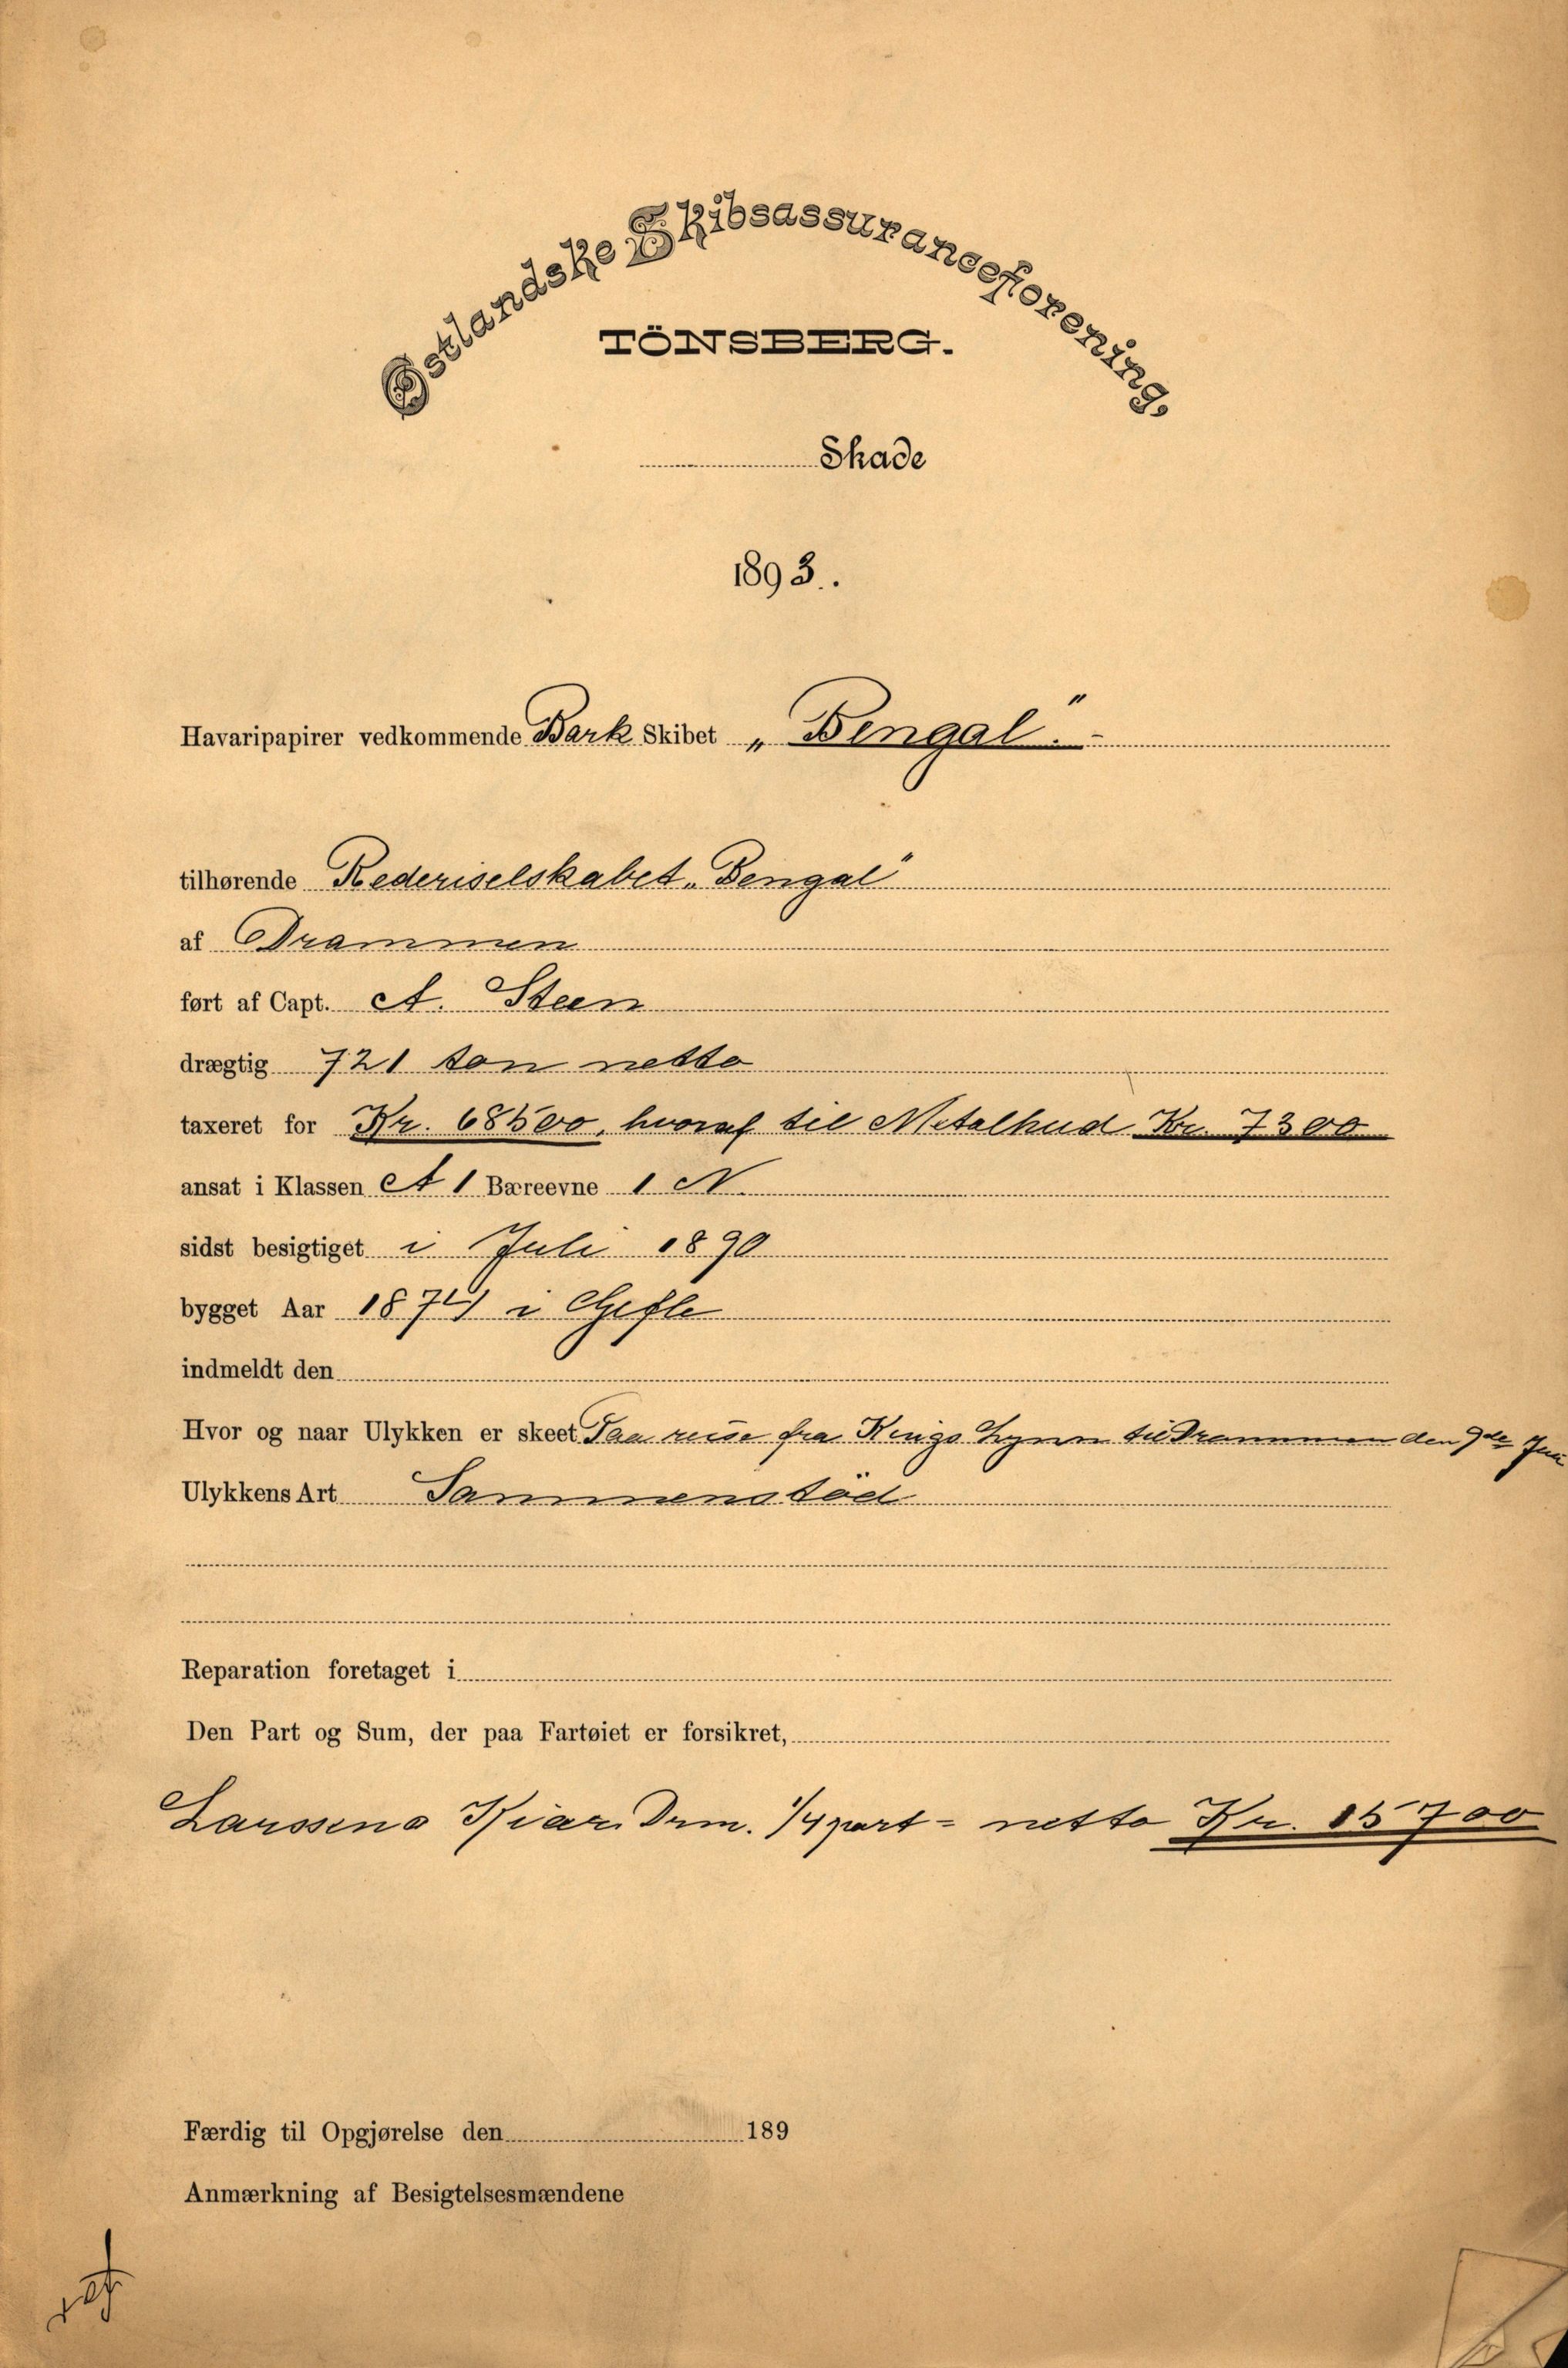 Østlandske Skibsassuranceforening,
TÖNSBERG.
Skade
1893.
Havaripapirer vedkommende Bark Skibet „Bengal".-
tilhørende Rederiselskabet „Bengal"
af Drammen
ført af Capt. A. Steen
drægtig 721 ton netto
taxeret for Kr. 68500, hvoraf til Metalhud Kr. 7300
ansat i Klassen A 1 Bæreevne 1 N.
sidst besigtiget i Juli 1890
bygget Aar 1874 i Gefle
indmeldt den
Hvor og naar Ulykken er skeet Paa reise fra Kings Lynn til Drammen den 9de Juni
Ulykkens Art Sammenstöd
Reparation foretaget i
Den Part og Sum, der paa Fartøiet er forsikret,
Larssens Kiær Drm. 1/4 part = netto Kr. 15700
Færdig til Opgjørelse den 189
Anmærkning af Besigtelsesmændene